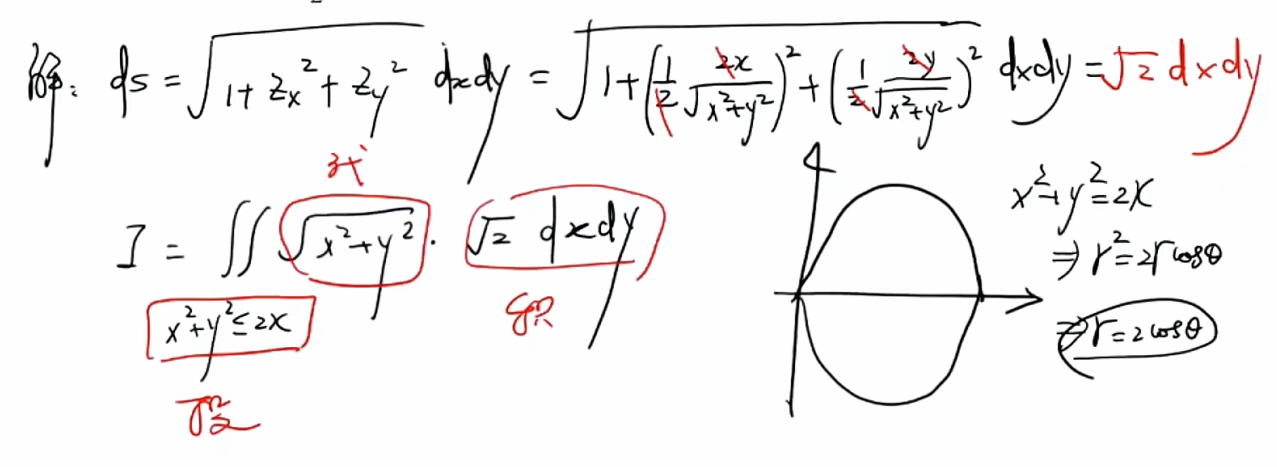 解: ds = √(1+z_x²+z_y²) dxdy = √(1+(1/2 2x/√(x²+y²))²+(1/2 2y/√(x²+y²))²) dxdy = √2 dxdy
I = ∬ √(x²+y²) · √2 dxdy
x²+y²≤2x
x²+y²=2x
⇒ r²=2rcosθ
⇒ r=2cosθ